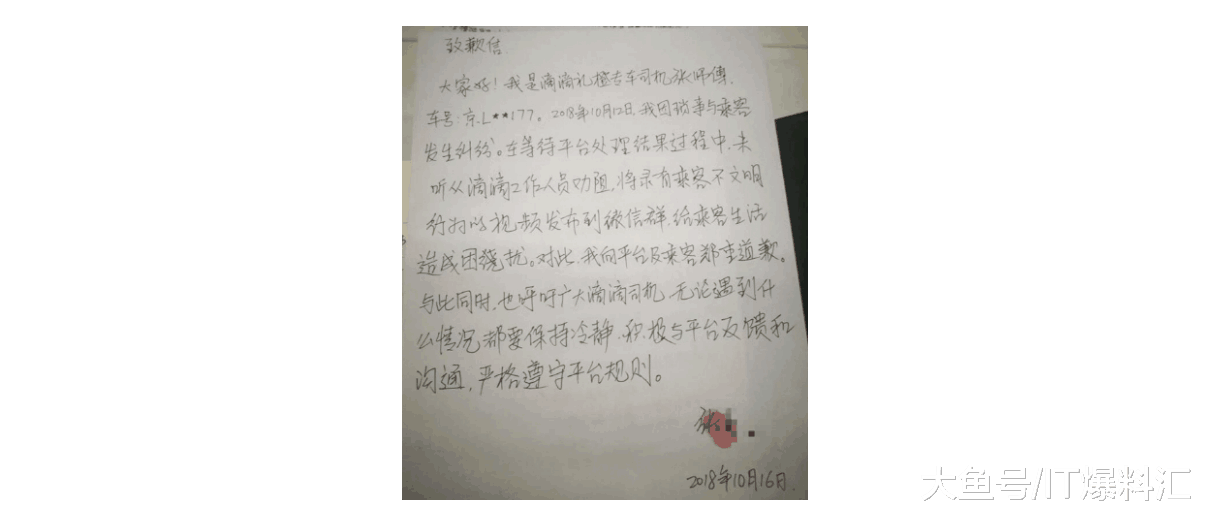 致歉信
大家好！我是滴滴礼橙专车司机张师傅，
车号：京.L**177。2018年10月12日，我因琐事与乘客
发生纠纷。在等待平台处理结果过程中，未
听从滴滴工作人员劝阻，将录有乘客不文明
行为的视频发布到微信群，给乘客生活
造成困扰。对此，我向平台及乘客郑重道歉。
与此同时，也呼吁广大滴滴司机，无论遇到什
么情况都要保持冷静，积极与平台反馈和
沟通，严格遵守平台规则。
张
2018年10月16日.
大鱼号/IT爆料汇